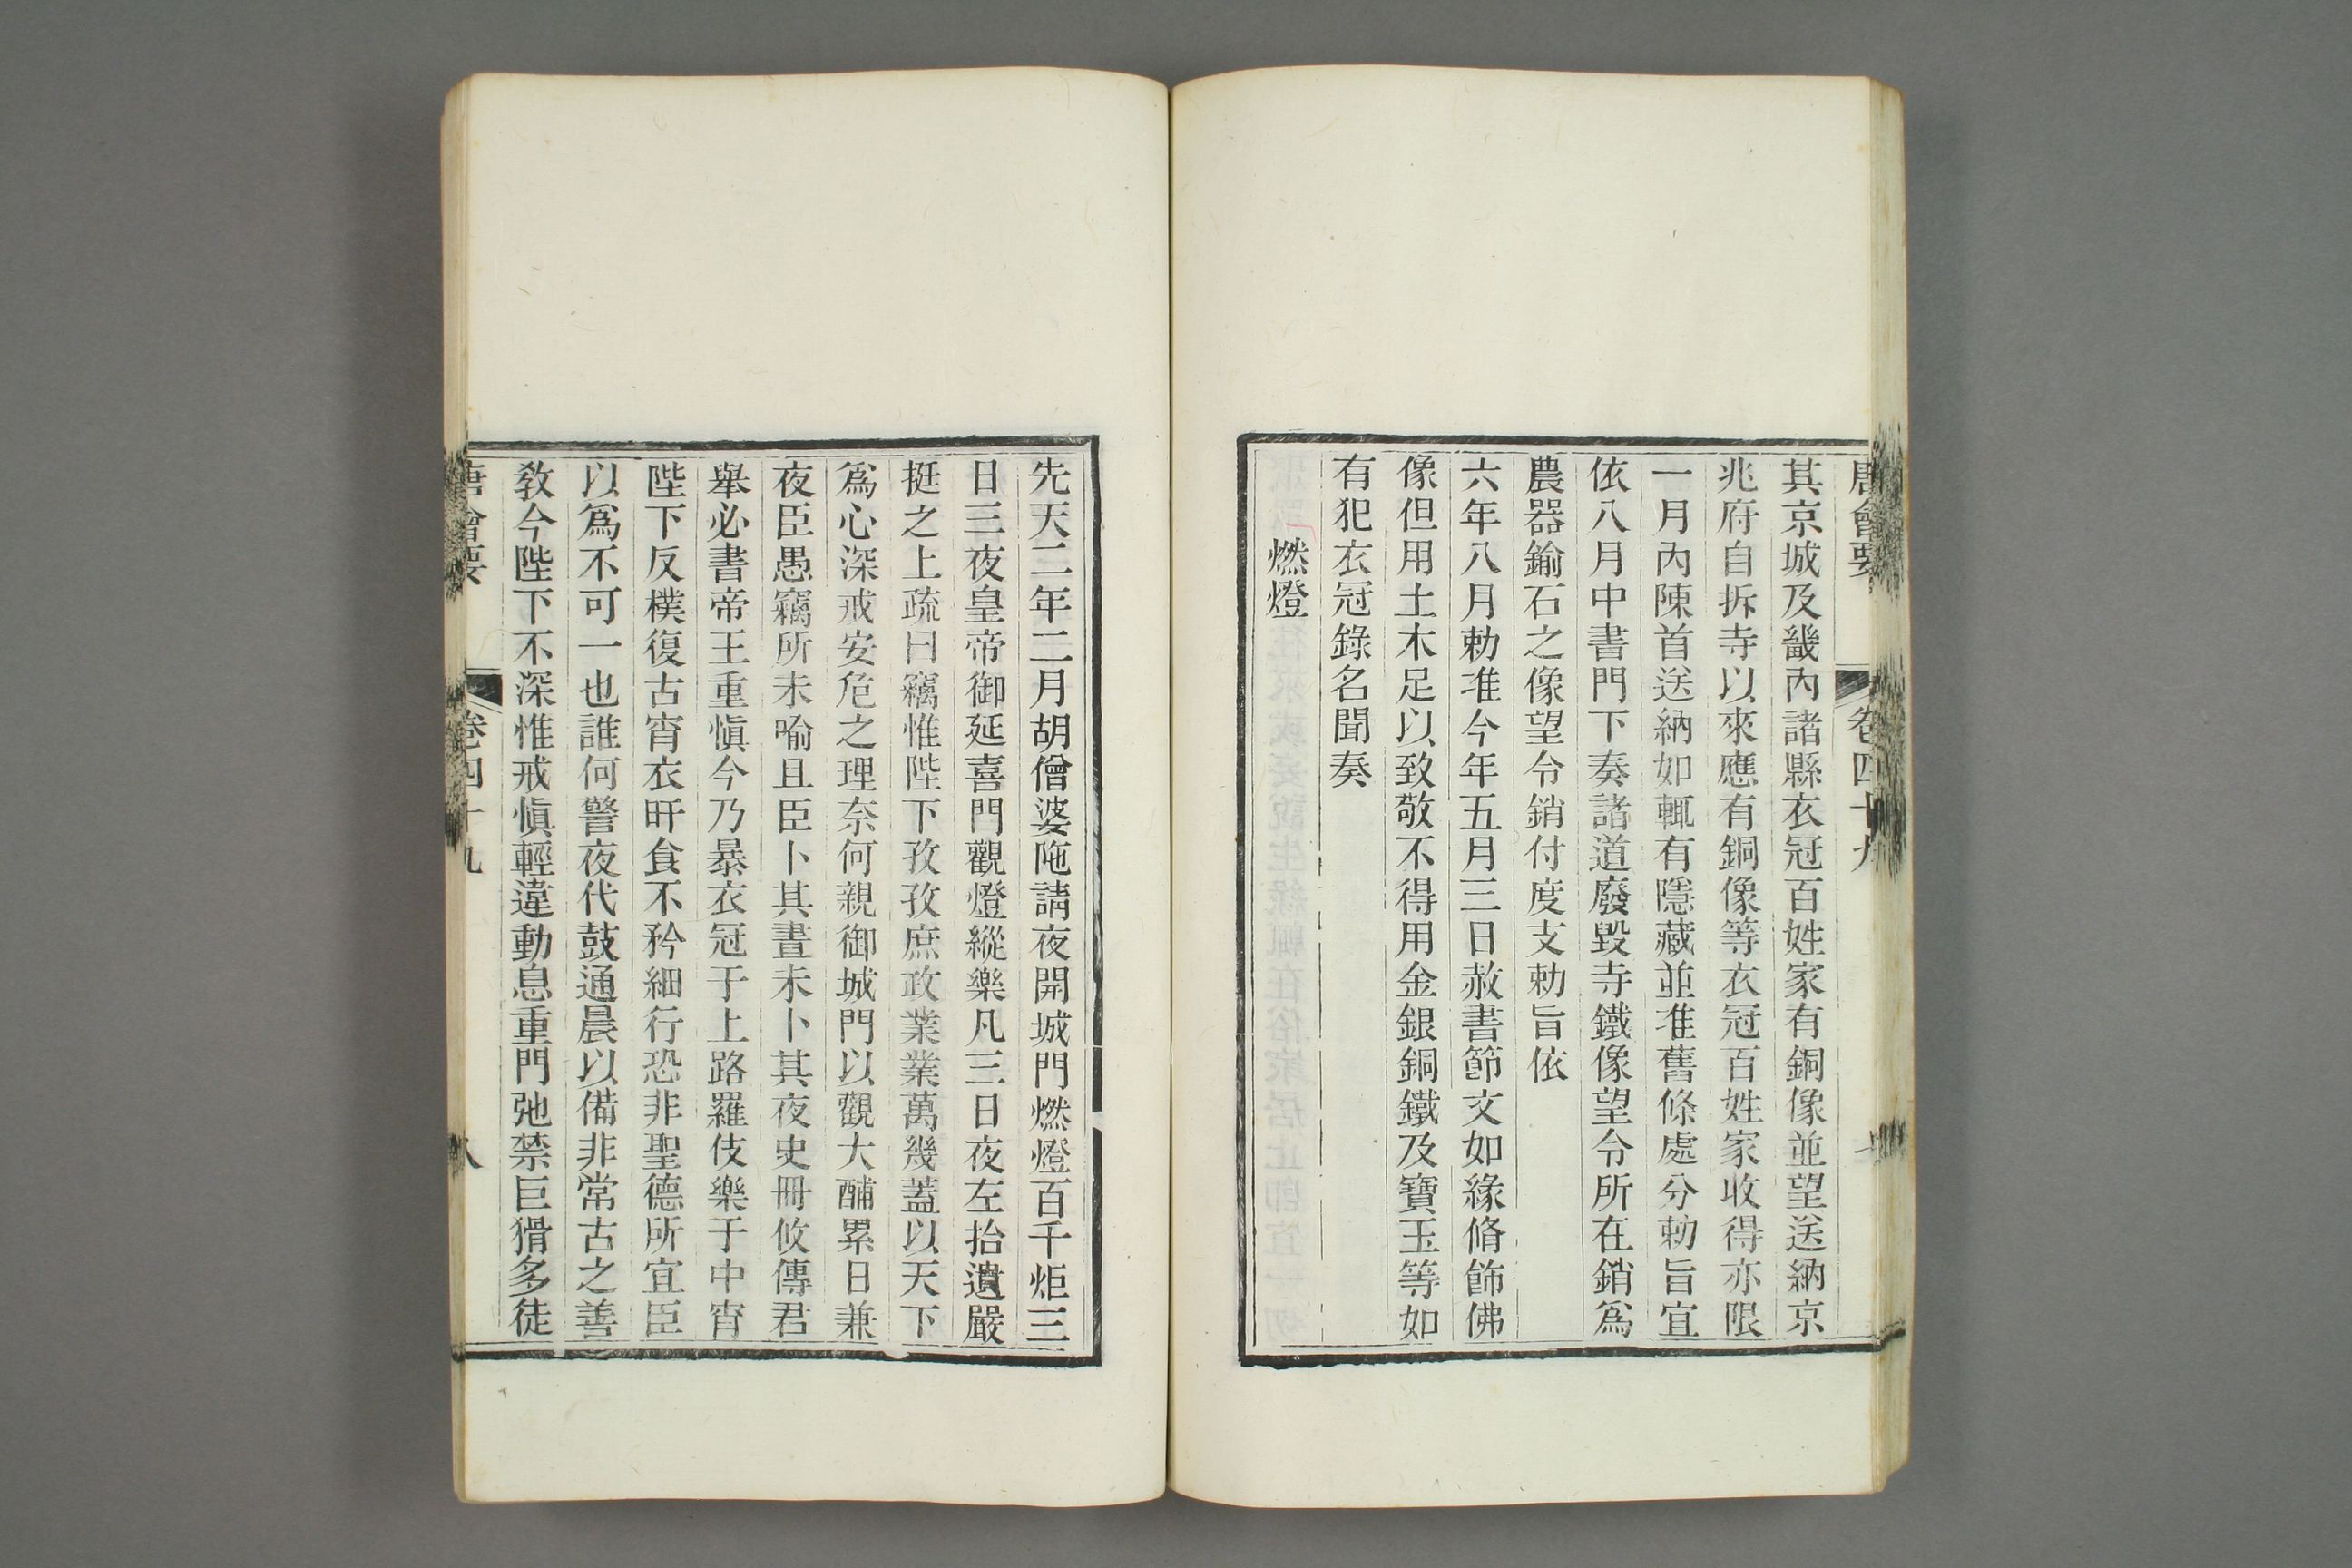 唐會要 卷四十九
其京城及畿內諸縣衣冠百姓家有銅像並望送納京
兆府自拆寺以來應有銅像等衣冠百姓家收得亦限
一月內陳首送納如輒有隱藏並准舊條處分勅旨宜
依八月中書門下奏諸道廢毀寺鐵像望令所在銷爲
農器鍮石之像望令銷付度支勅旨依
六年八月勅准今年五月三日赦書節文如緣脩飾佛
像但用土木足以致敬不得用金銀銅鐵及寶玉等如
有犯衣冠錄名聞奏
燃燈
先天二年二月胡僧婆陁請夜開城門燃燈百千炬三
日三夜皇帝御延喜門觀燈縱樂凡三日夜左拾遺嚴
挺之上疏曰竊惟陛下孜孜庶政業業萬幾蓋以天下
爲心深戒安危之理奈何親御城門以觀大酺累日兼
夜臣愚竊所未喻且臣卜其晝未卜其夜史冊攸傳君
舉必書帝王重愼今乃暴衣冠于上路羅伎樂于中宵
陛下反樸復古宵衣旰食不矜細行恐非聖德所宜臣
以爲不可一也誰何警夜代鼓通晨以備非常古之善
敎今陛下不深惟戒愼輕違動息重門弛禁巨猾多徒
唐會要 卷四十九 八